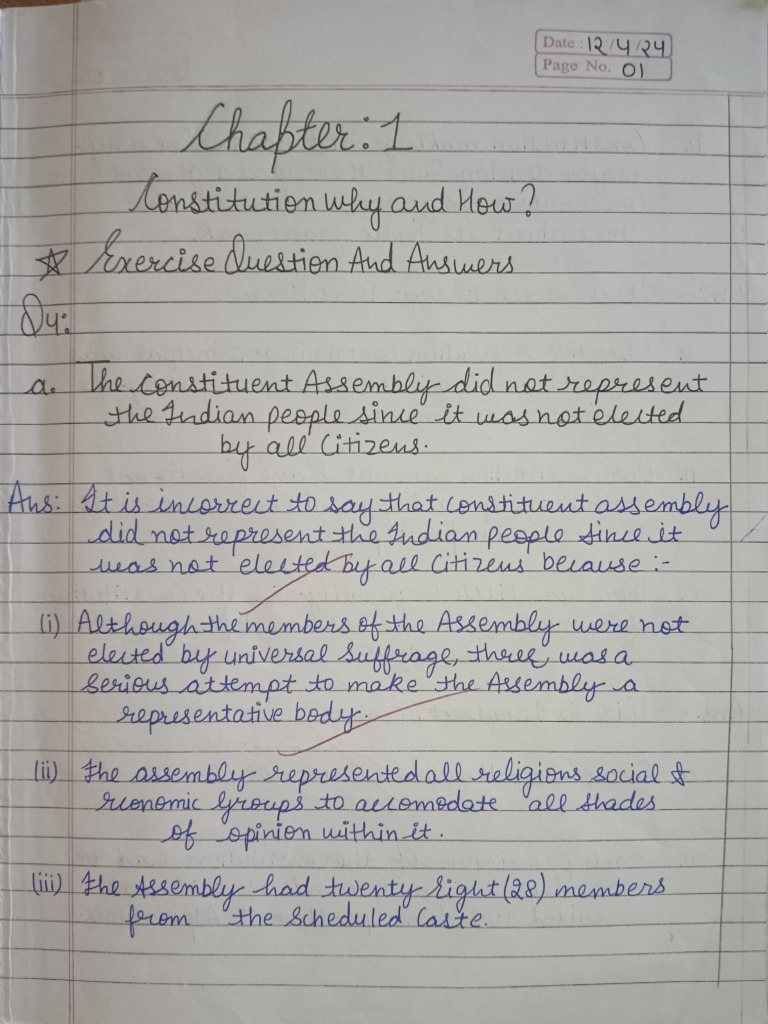 Date : 12/4/24
Page No. 01
Chapter: 1
Constitution Why and How?
☆ Exercise Question And Answers
Q4:
a. The Constituent Assembly did not represent
the Indian people since it was not elected
by all Citizens.
Ans: It is incorrect to say that constituent assembly
did not represent the Indian people since it
was not elected by all Citizens because :-
(i) Although the members of the Assembly were not
elected by universal Suffrage, three was a
Serious attempt to make the Assembly a
representative body.
(ii) The assembly represented all religions social &
economic Groups to accomodate all shades
of opinion within it.
(iii) The Assembly had twenty Eight (28) members
from the Scheduled Caste.